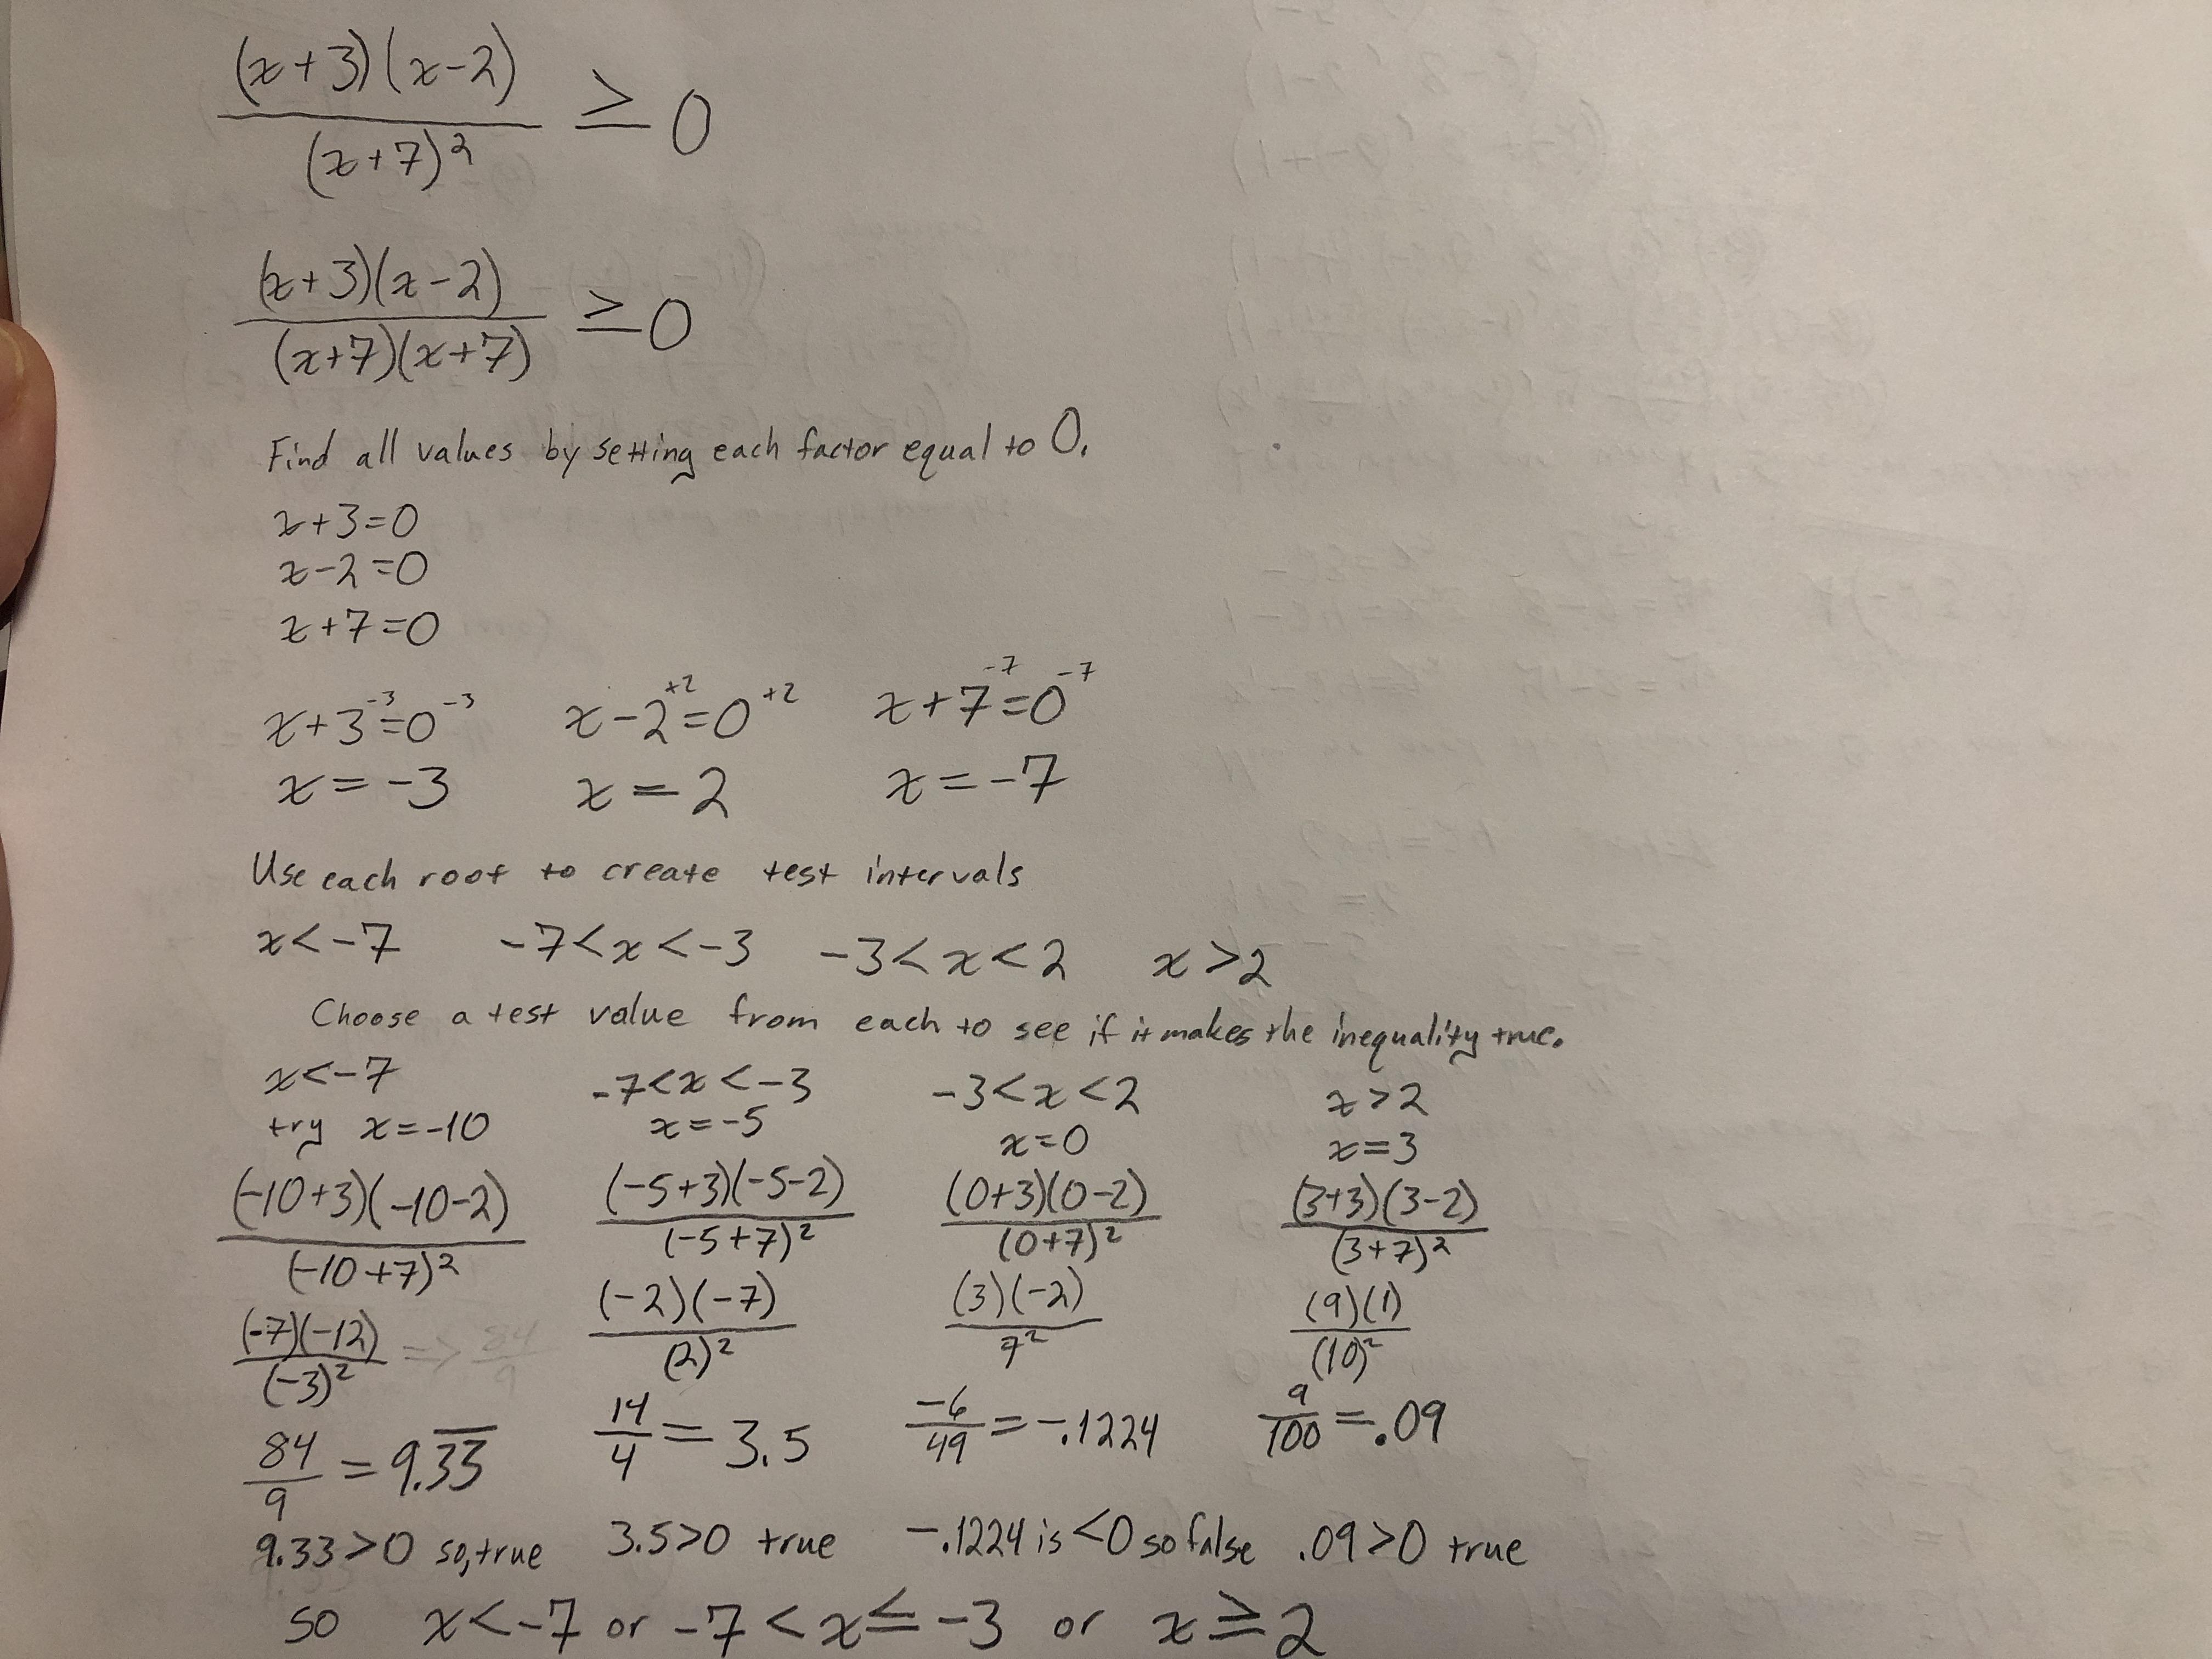 (x+3)(x-2)
/(x+7)² ≥ 0
(x+3)(x-2)
/(x+7)(x+7) ≥ 0
Find all values by setting each factor equal to 0.
x+3=0
x-2=0
x+7=0
x+3⁻³=0⁻³ x-2⁺²=0⁺² x+7⁻⁷=0⁻⁷
x=-3 x=2 x=-7
Use each root to create test intervals
x<-7 -7<x<-3 -3<x<2 x>2
Choose a test value from each to see if it makes the inequality true.
x<-7 -7<x<-3 -3<x<2 x>2
try x=-10 x=-5 x=0 x=3
(-10+3)(-10-2)/(-10+7)² (-5+3)(-5-2)/(-5+7)² (0+3)(0-2)/(0+7)² (3+3)(3-2)/(3+7)²
(-7)(-12)/(-3)² => 84/9 (-2)(-7)/(2)² (3)(-2)/7² (9)(1)/(10)²
84/9 = 9.3̅3̅ 14/4 = 3.5 -6/49 = -.1224 9/100 = .09
9.33>0 so, true 3.5>0 true -.1224 is <0 so false .09>0 true
so x<-7 or -7<x≤-3 or x≥2